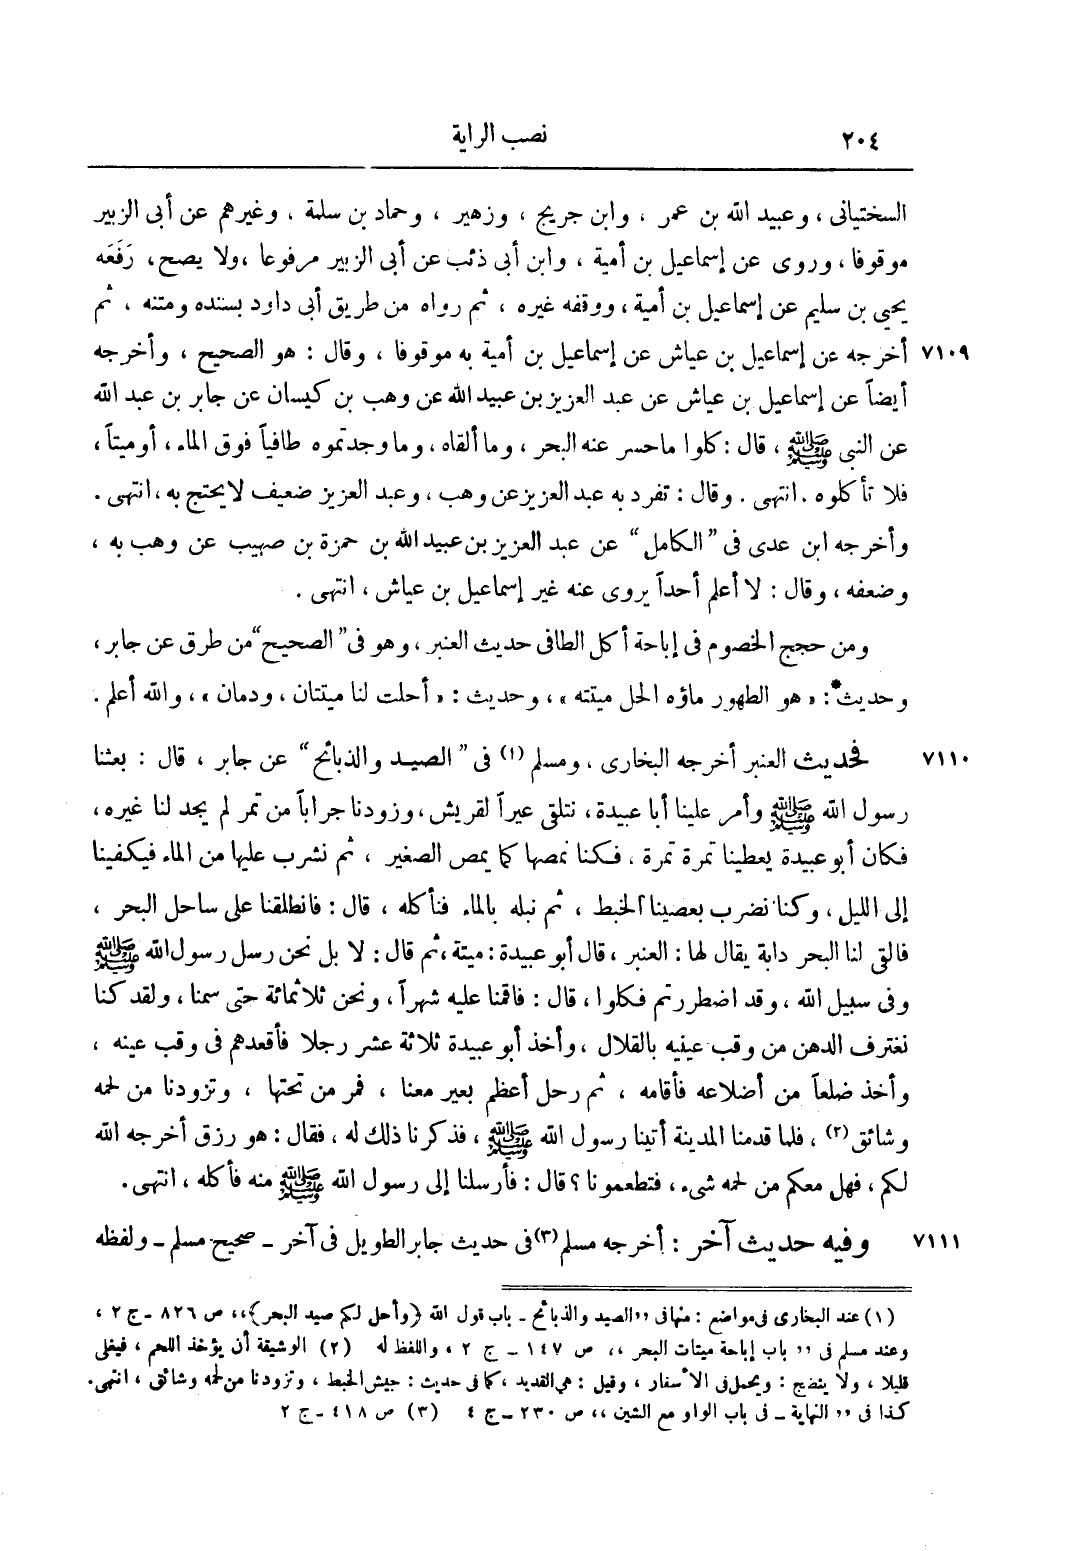 ٢٠٤ نصب الراية
السختيانى ، وعبيد الله بن عمر ، وابن جريج ، وزهير ، وحماد بن سلمة ، وغيرهم عن أبى الزبير
موقوفا ، وروى عن إسماعيل بن أمية ، وابن أبى ذئب عن أبى الزبير مرفوعا ، ولا يصح ، رَفَعَه
يحيى بن سليم عن إسماعيل بن أمية ، ووقفه غيره ، ثم رواه من طريق أبى داود بسنده ومتنه ، ثم
٧١٠٩ أخرجه عن إسماعيل بن عياش عن إسماعيل بن أمية به موقوفا ، وقال : هو الصحيح ، وأخرجه
أيضاً عن إسماعيل بن عياش عن عبد العزيز بن عبيد الله عن وهب بن كيسان عن جابر بن عبد الله
عن النبى ﷺ ، قال : كلوا ما حسر عنه البحر ، وما ألقاه ، وما وجدتموه طافياً فوق الماء ، أو ميتاً ،
فلا تأكلوه . انتهى . وقال : تفرد به عبد العزيز عن وهب ، وعبد العزيز ضعيف لا يحتج به ، انتهى .
وأخرجه ابن عدى فى "الكامل" عن عبد العزيز بن عبيد الله بن حمزة بن صهيب عن وهب به ،
وضعفه ، وقال : لا أعلم أحداً يروى عنه غير إسماعيل بن عياش ، انتهى .
ومن حجج الخصوم فى إباحة أكل الطافى حديث العنبر ، وهو فى "الصحيح" من طرق عن جابر ،
وحديث* : « هو الطهور ماؤه الحل ميتته » ، وحديث : « أحلت لنا ميتتان ، ودمان » ، والله أعلم .
٧١١٠ فحديث العنبر أخرجه البخارى ، ومسلم (١) فى "الصيد والذبائح" عن جابر ، قال : بعثنا
رسول الله ﷺ وأمر علينا أبا عبيدة ، نتلقى عيراً لقريش ، وزودنا جراباً من تمر لم يجد لنا غيره ،
فكان أبو عبيدة يعطينا تمرة تمرة ، فكنا نمصها كما يمص الصغير ، ثم نشرب عليها من الماء فيكفينا
إلى الليل ، وكنا نضرب بعصينا الخبط ، ثم نبله بالماء فنأكله ، قال : فانطلقنا على ساحل البحر ،
فألقى لنا البحر دابة يقال لها : العنبر ، قال أبو عبيدة : ميتة ، ثم قال : لا بل نحن رسل رسول الله ﷺ
وفى سبيل الله ، وقد اضطررتم فكلوا ، قال : فاقمنا عليه شهراً ، ونحن ثلاثمائة حتى سمنا ، ولقد كنا
نغترف الدهن من وقب عينيه بالقلال ، وأخذ أبو عبيدة ثلاثة عشر رجلا فأقعدهم فى وقب عينه ،
وأخذ ضلعاً من أضلاعه فأقامه ، ثم رحل أعظم بعير معنا ، فمر من تحتها ، وتزودنا من لحمه
وشائق (٢) ، فلما قدمنا المدينة أتينا رسول الله ﷺ ، فذكرنا ذلك له ، فقال : هو رزق أخرجه الله
لكم ، فهل معكم من لحمه شىء ، فتطعمونا ؟ قال : فأرسلنا إلى رسول الله ﷺ منه فأكله ، انتهى .
٧١١١ وفيه حديث آخر : أخرجه مسلم (٣) فى حديث جابر الطويل فى آخر ــ صحيح مسلم ــ ولفظه
(١) عند البخارى فى مواضع : منها فى ,, الصيد والذبائح ــ باب قول الله {وأحل لكم صيد البحر} ،، ص ٨٢٦ ــ ج ٢ ،
وعند مسلم فى ,, باب إباحة ميتات البحر ،، ص ١٤٧ ــ ج ٢ ، واللفظ له (٢) الوشيقة أن يؤخذ اللحم ، فيغلى
قليلا ، ولا ينضج : ويحمل فى الأسفار ، وقيل : هى القديد ، كما فى حديث : جيش الخبط ، وتزودنا من لحمه وشائق ، انتهى .
كذا فى ,, النهاية ــ فى باب الواو مع الشين ،، ص ٢٣٠ ــ ج ٤ (٣) ص ٤١٨ ــ ج ٢